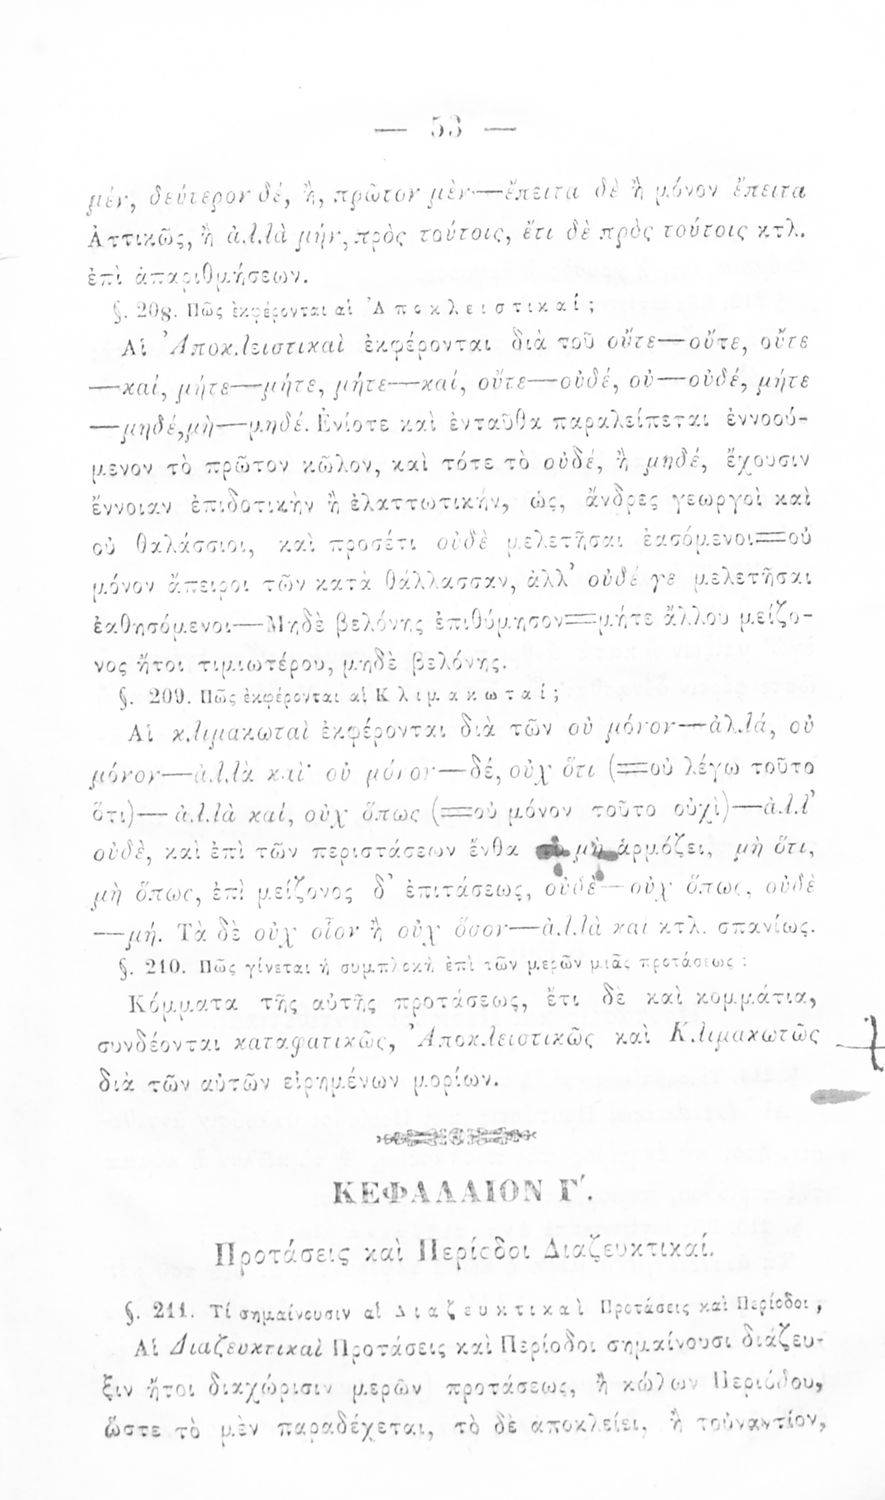 — 53 —
μέν, δεύτερον δέ, ἢ, πρῶτον μὲν—ἔπειτα δὲ ἢ μόνον ἔπειτα
Ἀττικῶς, ἢ ἀλλὰ μὴν, πρὸς τούτοις, ἔτι δὲ πρὸς τούτοις κτλ.
ἐπὶ ἀπαριθμήσεων.
§. 208. Πῶς ἐκφέρονται αἱ Ἀποκλειστικαί;
Αἱ Ἀποκλειστικαὶ ἐκφέρονται διὰ τοῦ οὔτε—οὔτε, οὔτε
—καί, μήτε—μήτε, μήτε—καί, οὔτε—οὐδέ, οὐ—οὐδέ, μήτε
—μηδέ, μὴ—μηδέ. Ἐνίοτε καὶ ἐνταῦθα παραλείπεται ἐννοού-
μενον τὸ πρῶτον κῶλον, καὶ τότε τὸ οὐδέ, ἢ μηδέ, ἔχουσιν
ἔννοιαν ἐπιδοτικὴν ἢ ἐλαττωτικήν, ὡς, ἄνδρες γεωργοὶ καὶ
οὐ θαλάσσιοι, καὶ προσέτι οὐδὲ μελετῆσαι ἐασόμενοι=οὐ
μόνον ἄπειροι τῶν κατὰ θάλλασσαν, ἀλλ’ οὐδέ γε μελετῆσαι
ἐαθησόμενοι—Μηδὲ βελόνης ἐπιθύμησον=μήτε ἄλλου μείζο-
νος ἤτοι τιμιωτέρου, μηδὲ βελόνης.
§. 209. Πῶς ἐκφέρονται αἱ Κλιμακωταί;
Αἱ κλιμακωταὶ ἐκφέρονται διὰ τῶν οὐ μόνον—ἀλλά, οὐ
μόνον—ἀλλὰ καὶ· οὐ μόνον—δέ, οὐχ ὅτι (=οὐ λέγω τοῦτο
ὅτι)—ἀλλὰ καί, οὐχ ὅπως (=οὐ μόνον τοῦτο οὐχὶ)—ἀλλ’
οὐδὲ, καὶ ἐπὶ τῶν περιστάσεων ἔνθα τὸ μὴ ἁρμόζει, μὴ ὅτι,
μὴ ὅπως, ἐπὶ μείζονος δ’ ἐπιτάσεως, οὐδὲ—οὐχ ὅπως, οὐδὲ
—μή. Τὰ δὲ οὐχ οἷον ἢ οὐχ ὅσον—ἀλλὰ καὶ κτλ. σπανίως.
§. 210. Πῶς γίνεται ἡ συμπλοκὴ ἐπὶ τῶν μερῶν μιᾶς προτάσεως;
Κόμματα τῆς αὐτῆς προτάσεως, ἔτι δὲ καὶ κομμάτια,
συνδέονται καταφατικῶς, Ἀποκλειστικῶς καὶ Κλιμακωτῶς
διὰ τῶν αὐτῶν εἰρημένων μορίων.
ΚΕΦΑΛΑΙΟΝ Γ΄.
Προτάσεις καὶ Περίοδοι Διαζευκτικαί.
§. 211. Τί σημαίνουσιν αἱ Διαζευκτικαὶ Προτάσεις καὶ Περίοδοι,
Αἱ Διαζευκτικαὶ Προτάσεις καὶ Περίοδοι σημαίνουσι διάζευ-
ξιν ἤτοι διαχώρισιν μερῶν προτάσεως, ἢ κώλων Περιόδου,
ὥστε τὸ μὲν παραδέχεται, τὸ δὲ ἀποκλείει, ἢ τοὐναντίον,